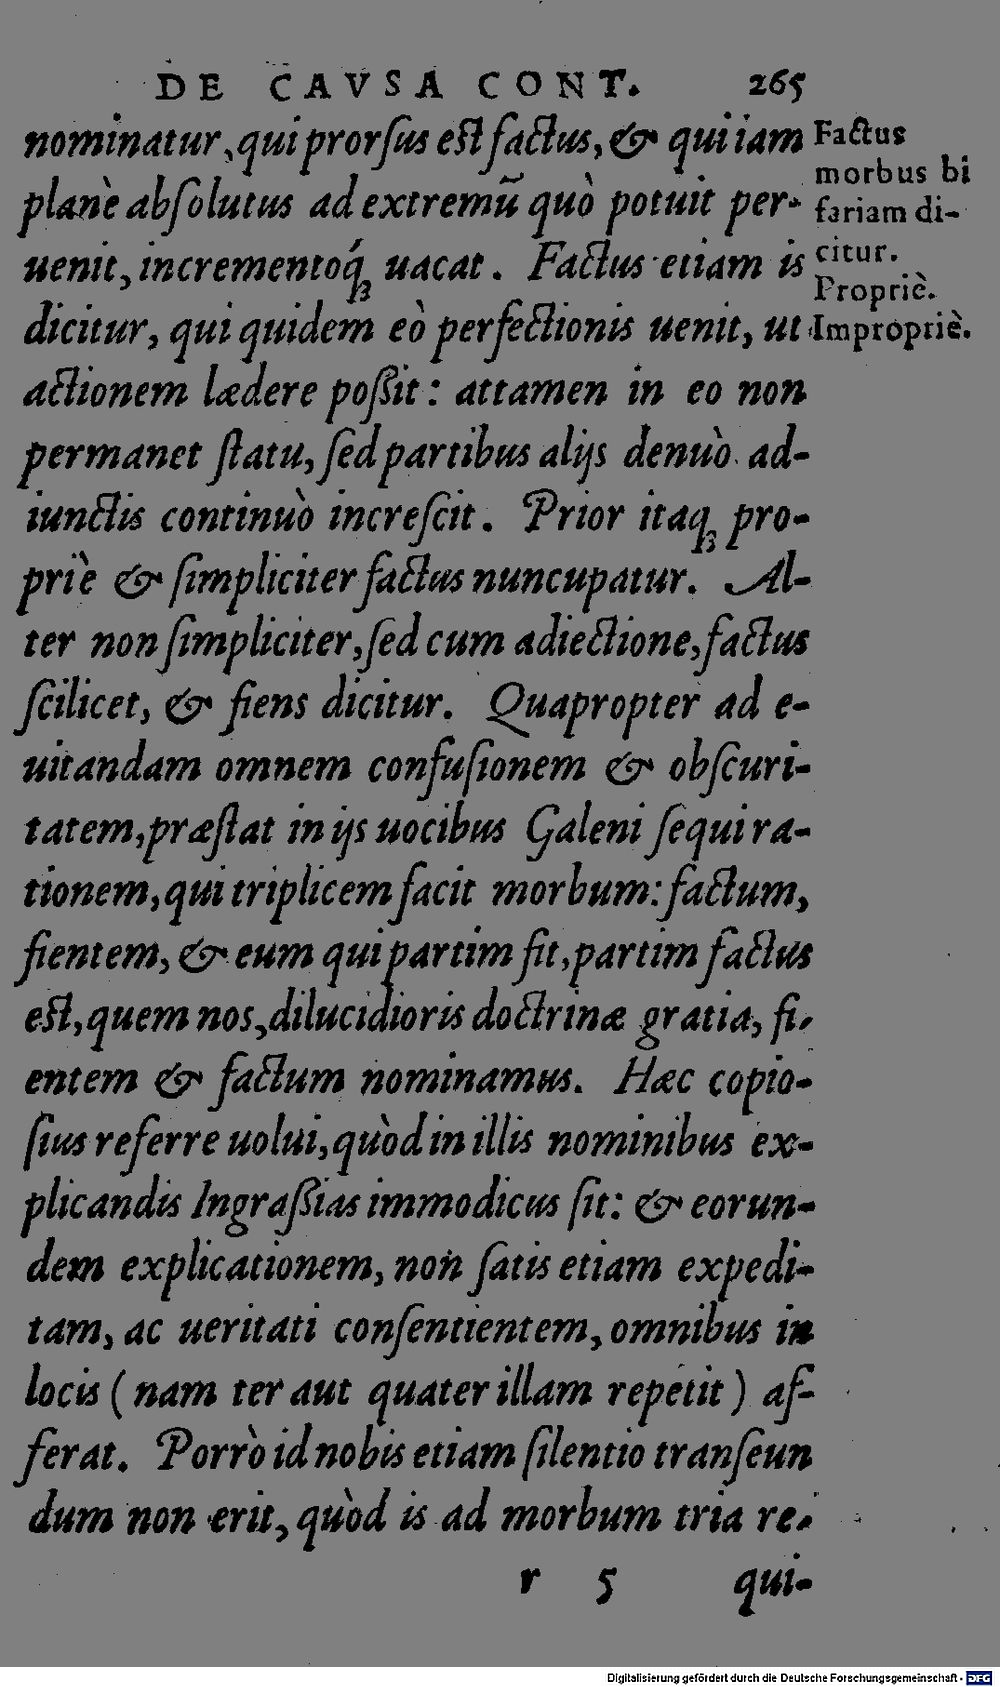 DE CAVSA CONT. 265
nominatur, qui prorſus eſt factus, & qui iam
planè abſolutus ad extremũ quò potuit per-
uenit, incrementoq́ꝫ uacat. Factus etiam is
dicitur, qui quidem eò perfectionis uenit, ut
actionem lædere poßit: attamen in eo non
permanet ſtatu, ſed partibus alijs denuò ad-
iunctis continuò increſcit. Prior itaqꝫ pro-
priè & ſimpliciter factus nuncupatur. Al-
ter non ſimpliciter, ſed cum adiectione, factus
ſcilicet, & fiens dicitur. Quapropter ad e-
uitandam omnem confuſionem & obſcuri-
tatem, præſtat in ijs uocibus Galeni ſequi ra-
tionem, qui triplicem facit morbum: factum,
fientem, & eum qui partim fit, partim factus
eſt, quem nos, dilucidioris doctrinæ gratia, fi-
entem & factum nominamus. Hæc copio-
ſius referre uolui, quòd in illis nominibus ex-
plicandis Ingraßias immodicus ſit: & eorun-
dem explicationem, non ſatis etiam expedi-
tam, ac ueritati conſentientem, omnibus in
locis (nam ter aut quater illam repetit) af-
ferat. Porrò id nobis etiam ſilentio tranſeun
dum non erit, quòd is ad morbum tria re-
r 5 qui-
Factus
morbus bi
fariam di-
citur.
Propriè.
Impropriè.
Digitalisierung gefördert durch die Deutsche Forschungsgemeinschaft - DFG